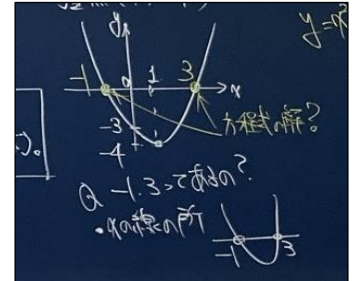 y
y=x²
-1
0
1
3
x
-3
-4
方程式の解?
Q -1.3ってあるの?
・xの線の所
-1
3